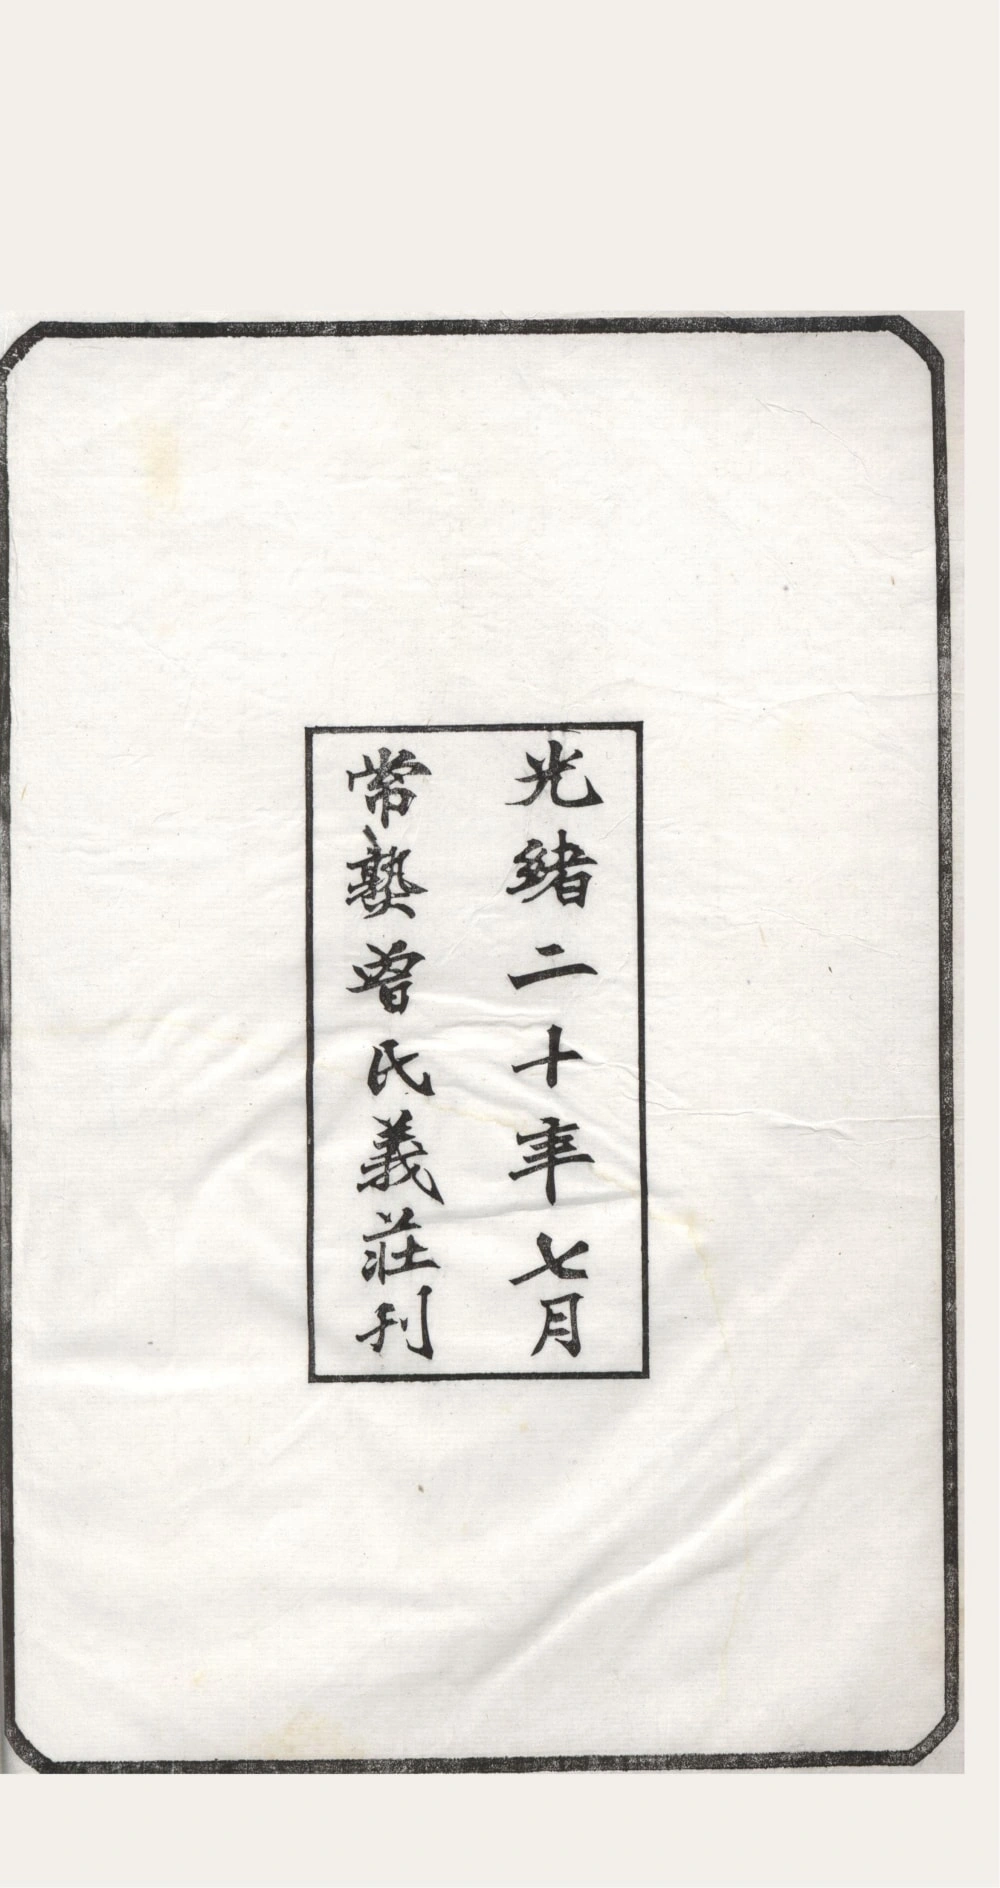 光緒二十年七月
常熟曾氏義莊刊